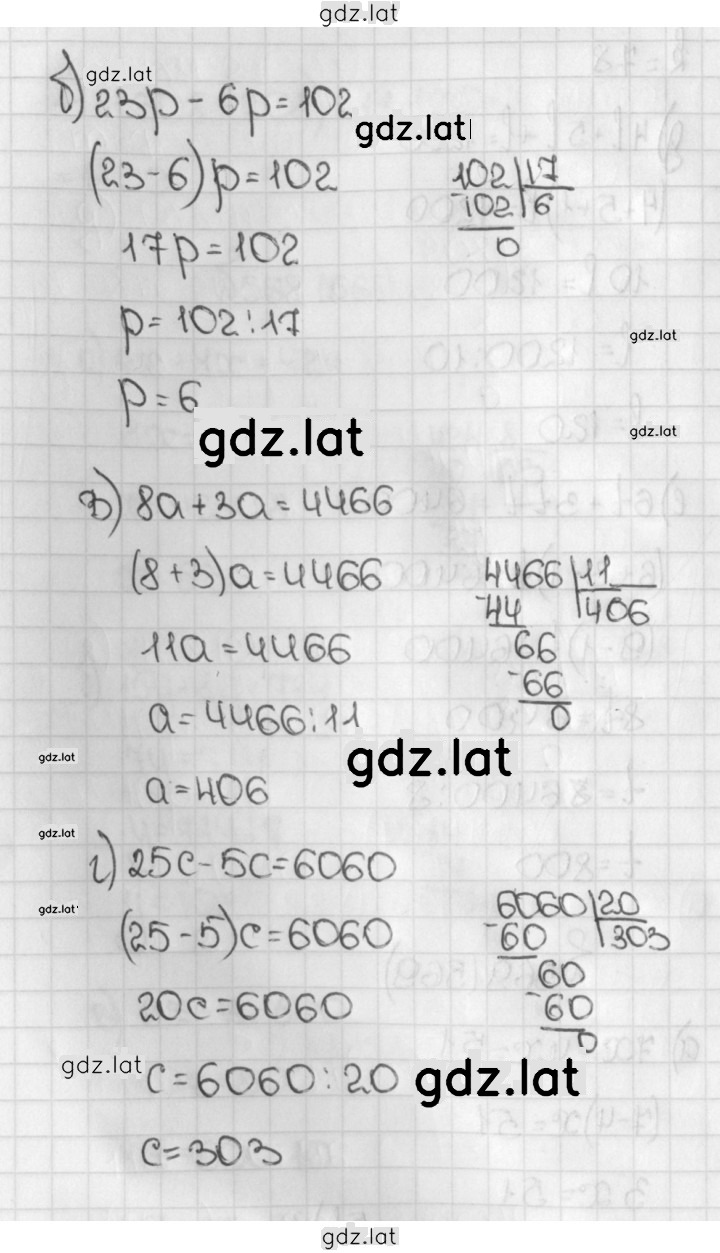 gdz.lat
gdz.lat
б) 23p - 6p = 102
gdz.lat
(23-6)p = 102
102 | 17
-102 | 6
0
17p = 102
p = 102 : 17
gdz.lat
p = 6
gdz.lat
gdz.lat
в) 8a + 3a = 4466
(8 + 3)a = 4466
4466 | 11
-44 | 406
66
-66
0
11a = 4466
a = 4466 : 11
gdz.lat
gdz.lat
a = 406
gdz.lat
г) 25c - 5c = 6060
gdz.lat
(25 - 5)c = 6060
6060 | 20
-60 | 303
60
-60
0
20c = 6060
gdz.lat
c = 6060 : 20
gdz.lat
c = 303
gdz.lat